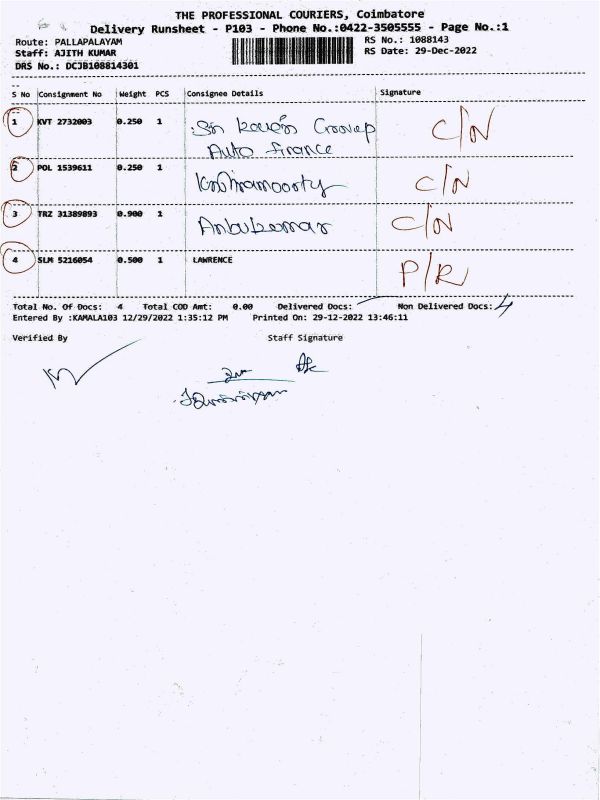 THE PROFESSIONAL COURIERS, Coimbatore
Delivery Runsheet - P103 - Phone No.:0422-3505555 - Page No.:1
Route: PALLAPALAYAM RS No.: 1088143
Staff: AJITH KUMAR RS Date: 29-Dec-2022
DRS No.: DCJB108814301
S No Consignment No Weight PCS Consignee Details Signature
1 KVT 2732003 0.250 1 Groovep C/N
Auto finance
2 POL 1539611 0.250 1 C/N
3 TRZ 31389893 0.900 1 Anbukumar C/N
4 SLM 5216054 0.500 1 LAWRENCE P/R
Total No. Of Docs: 4 Total COD Amt: 0.00 Delivered Docs: Non Delivered Docs: 4
Entered By :KAMALA103 12/29/2022 1:35:12 PM Printed On: 29-12-2022 13:46:11
Verified By Staff Signature